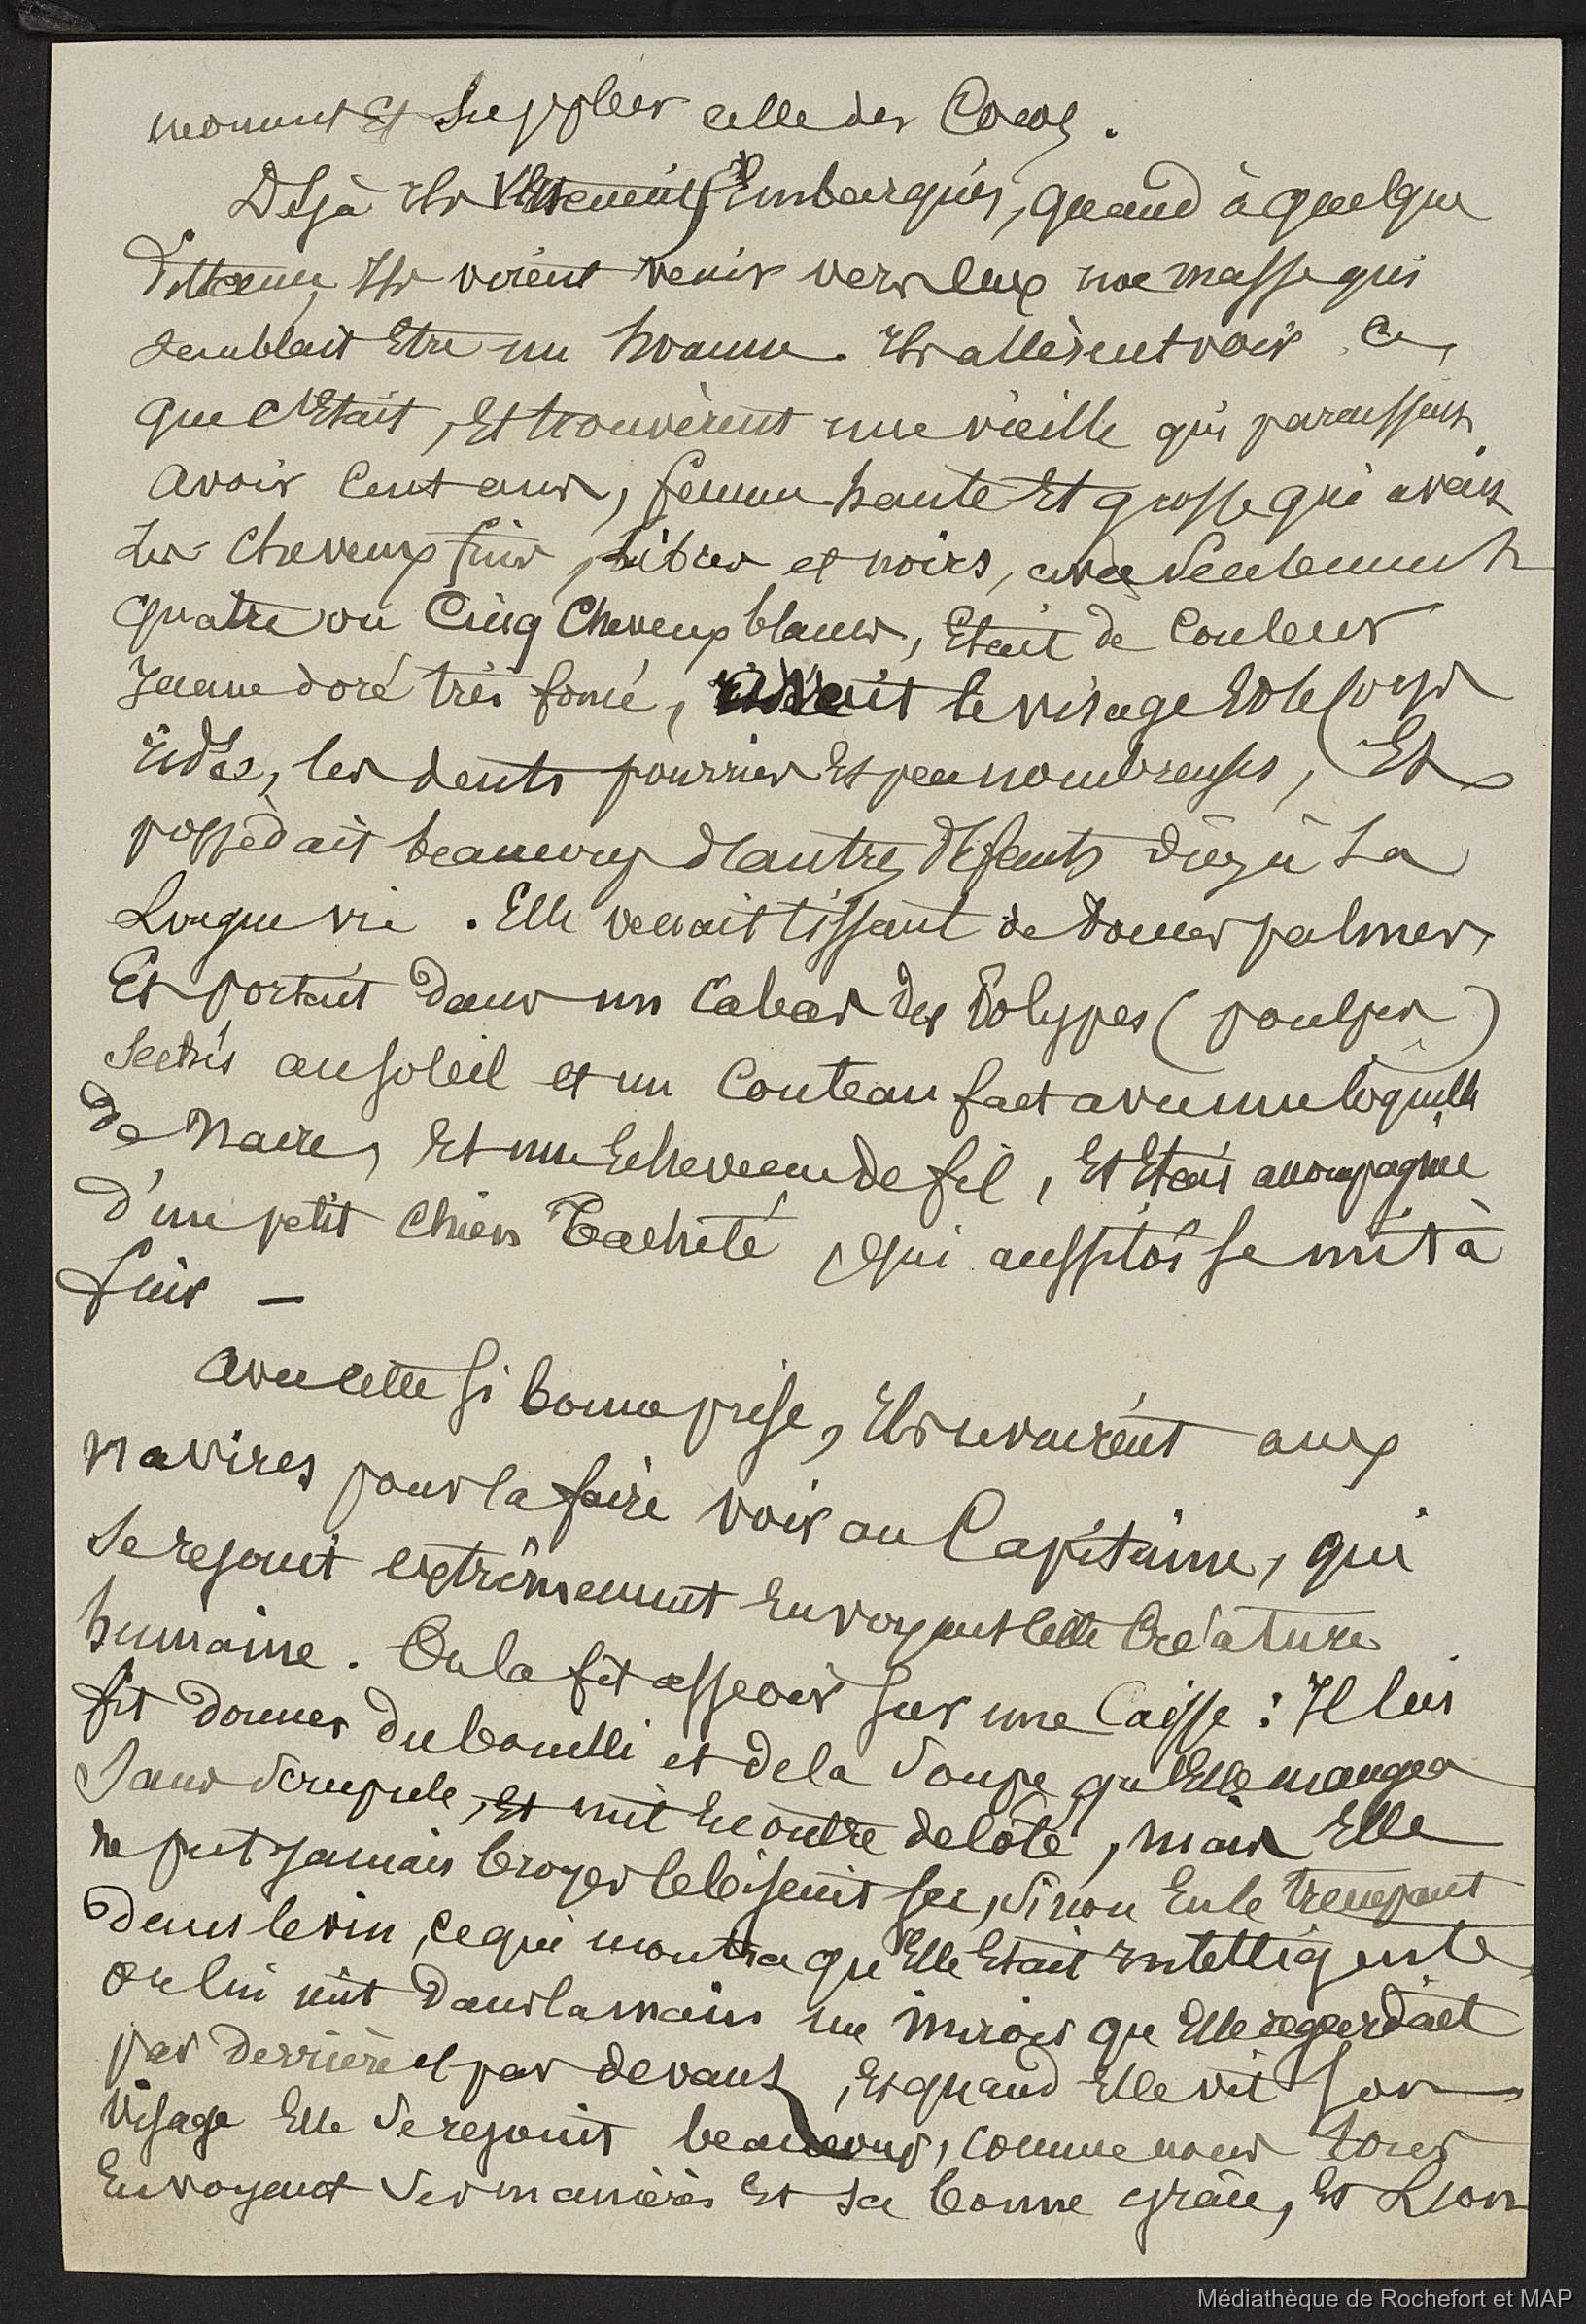 moururent et suppléer celle des Cocos.
Déjà ils Embarqués, quand à quelque
distance, Ils voient venir vers Eux une masse qui
semblait Etre un homme. Ils allèrent voir ce
que c'Etait, Et trouvèrent une vieille qui paraissait
avoir Cent ans, femme haute Et grosse qui avait
les Cheveux fins, libres et noirs, avec seulement
quatre ou Cinq Cheveux blancs, Etait de Couleur
Jaune doré très foncé, avait le visage Et le corps
ridés, les dents pourries Et peu nombreuses, Et
possèdait beaucoup d'autres défauts dûs à sa
Longue vie. Elle venait tissant de palmes,
Et portant dans un Cabas des Polypes (poulpes)
séchés au soleil et un Couteau fait avec une coquille
de Nacre, Et un Echeveau de fil, Et Etait accompagnée
d'un petit Chien Tacheté, qui aussitôt se mit à
fuir –
Avec cette si bonne prise, Ils revinrent aux
navires pour la faire voir au Capitaine, qui
se rejouit extrêmement En voyant cette Créature
humaine. On la fit asseoir sur une Caisse : Il lui
fit donner du bouilli et de la soupe qu'Elle mangea
sans scrupule, Et mit le outre de côté, mais Elle
ne put jamais broyer le biscuit sec, sinon En le trempant
dans le vin, ce qui montra qu'Elle Etait Intelligente,
On lui mit dans la main un miroir qu'Elle regardait
par derrière et par devant, Et quand Elle vit son
visage Elle se rejouit beaucoup, comme nous tous
En voyant ses manières Et sa bonne grâce, Et L'on
Médiathèque de Rochefort et MAP